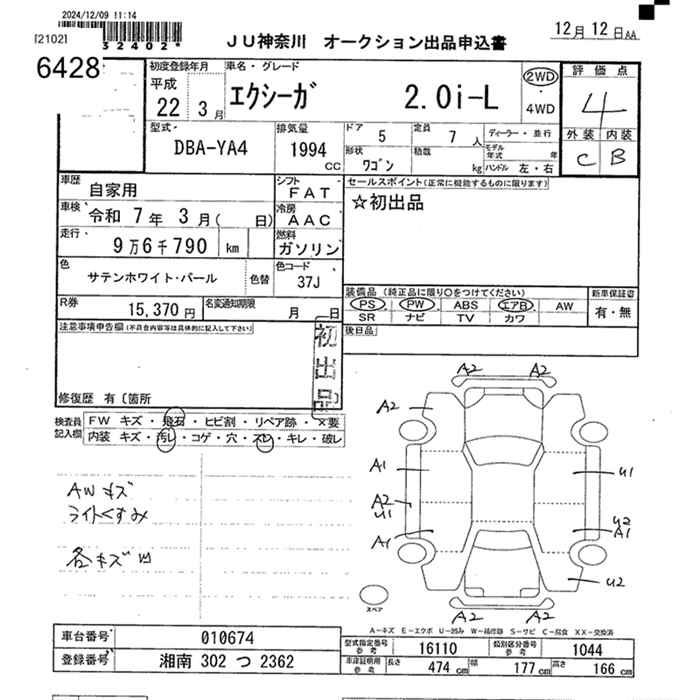 2024/12/09 11:14
[2102]
32402
JU神奈川 オークション出品申込書
12月12日AA
6428
初度登録年月
平成
22 3月
車名・グレード
エクシーガ 2.0i-L
2WD
・
4WD
評価点
4
外装 内装
C B
型式
DBA-YA4
排気量
1994
CC
ドア
5
定員
7人
ディーラー・並行
形状
ワゴン
積載
kg
モデル
年式 年
ハンドル 左・右
車歴
自家用
シフト
FAT
セールスポイント(正常に機能するものに限ります)
☆初出品
車検
令和 7年 3月( 日)
冷房
AAC
走行
9万6千790 km
燃料
ガソリン
色
サテンホワイト・パール
色替
色コード
37J
R券
15,370円
名変通知期限
月 日
装備品(純正品に限り○をつけてください)
PS PW ABS エアB AW
SR ナビ TV カワ
新車保証書
有・無
後日品
注意事項申告欄(不具合内容等は具体的に記入して下さい)
初出品
修復歴 有〔箇所
検査員
記入欄
FW キズ・飛石・ヒビ割・リペア跡・×要
内装 キズ・汚レ・コゲ・穴・スレ・キレ・破レ
AWキズ
ライトくすみ
各キズ凹
A2 A2
A2
A1 U1
A2
U1
U2
A1
A1
U2
A2 A2
スペア
A-キズ E-エクボ U-凹み W-補修跡 S-サビ C-腐食 XX-交換済
車台番号 010674
登録番号 湘南 302 つ 2362
型式指定番号
参考
16110
類別区分番号
参考
1044
車庫証明用
参考
長さ 474 cm 幅 177 cm 高さ 166 cm